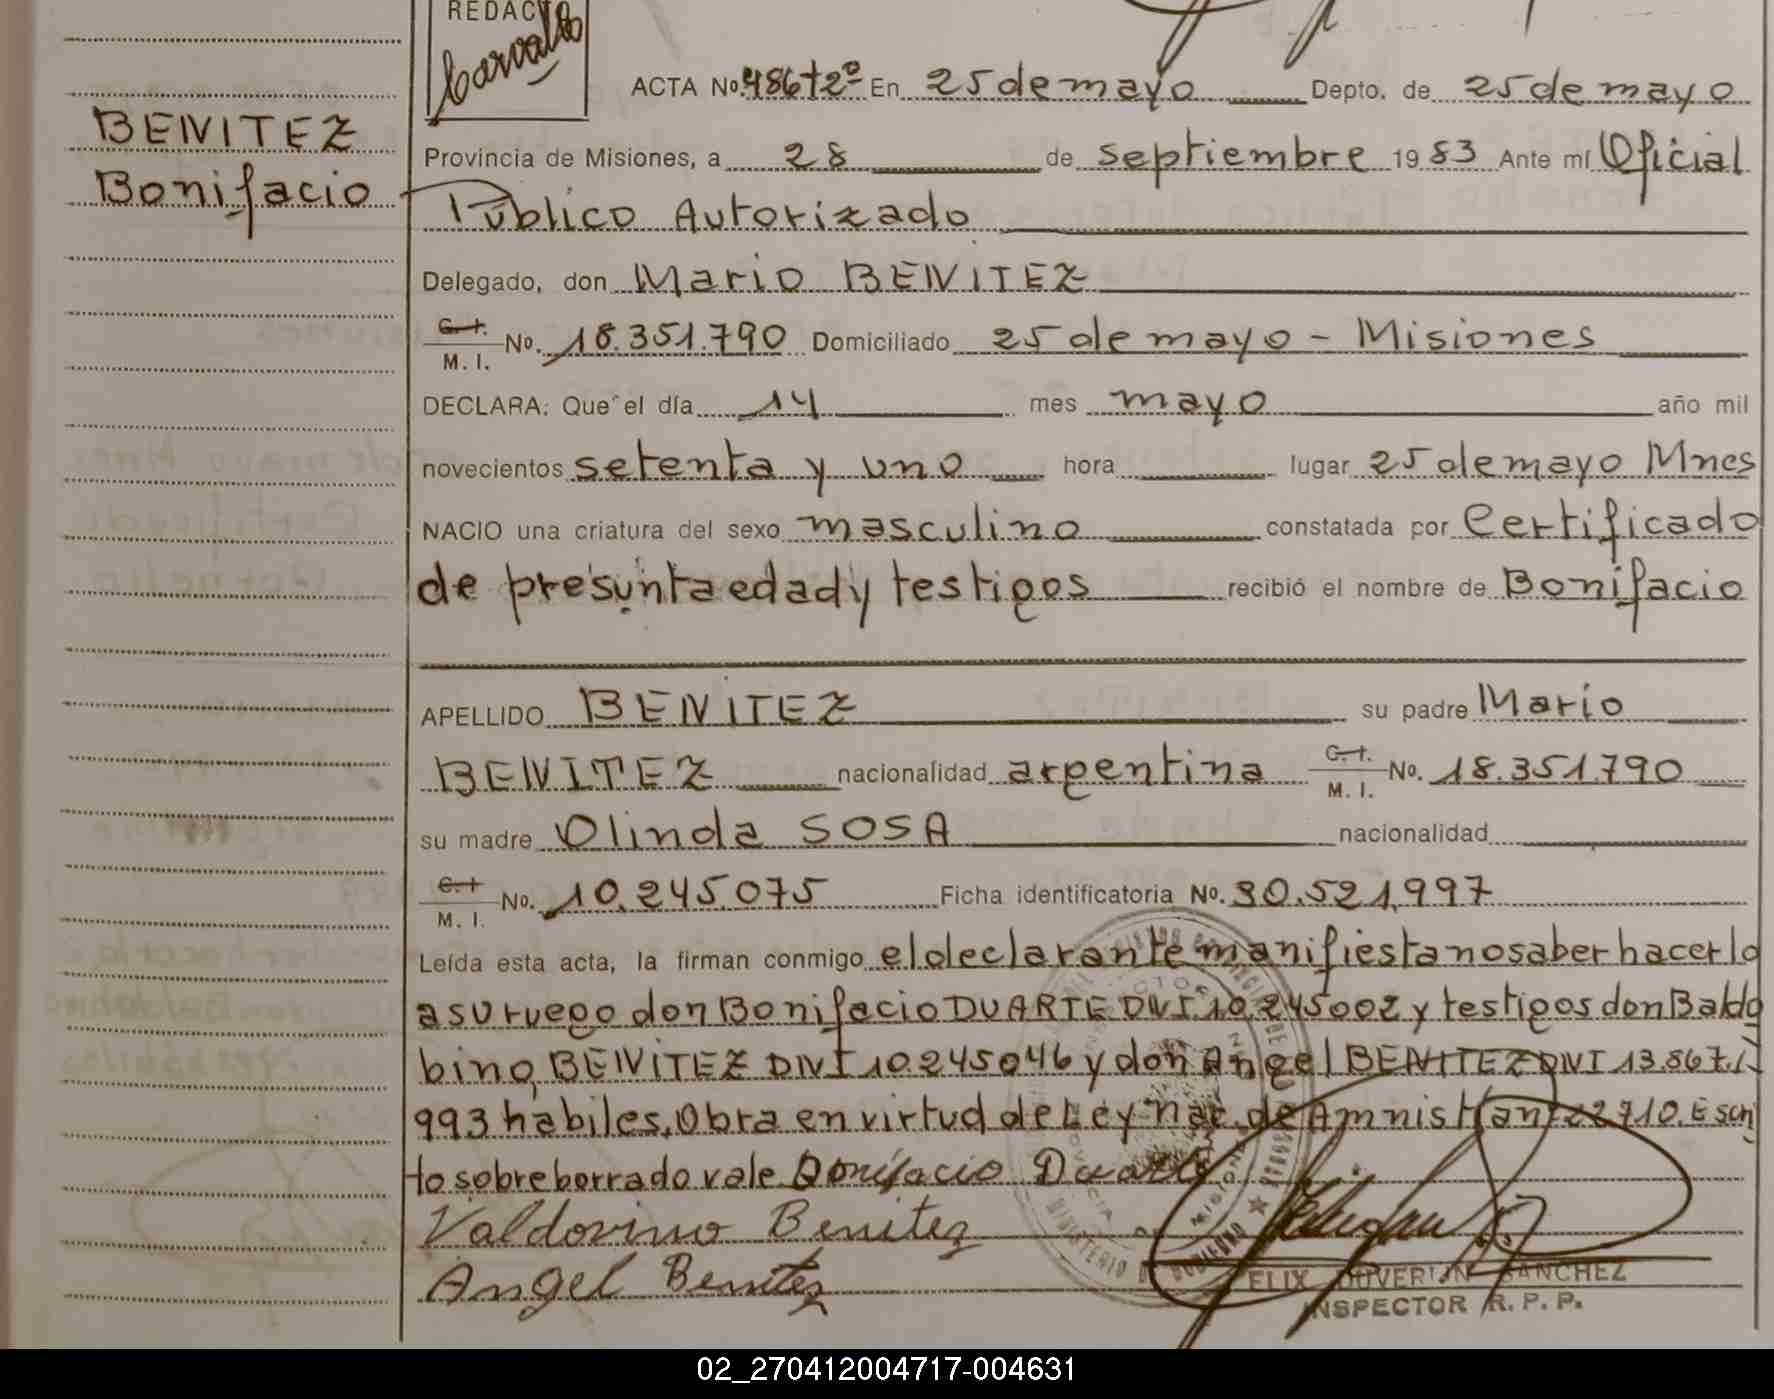 REDAC
Carvallo
ACTA No. 486 t2º En 25 de mayo Depto. de 25 de mayo
BENITEZ
Bonifacio
Provincia de Misiones, a 28 de septiembre 1983 Ante mí Oficial
Público Autorizado
Delegado, don Mario BENITEZ
C. I. M. I. No. 18.351.790 Domiciliado 25 de mayo - Misiones
DECLARA: Que el día 14 mes mayo año mil
novecientos setenta y uno hora lugar 25 de mayo Mnes
NACIO una criatura del sexo masculino constatada por Certificado
de presunta edad y testigos recibió el nombre de Bonifacio
APELLIDO BENITEZ su padre Mario
BENITEZ nacionalidad argentina C. I. M. I. No. 18.351.790
su madre Olinda SOSA nacionalidad
C. I. M. I. No. 10.245.075 Ficha identificatoria No. 30.521.997
Leída esta acta, la firman conmigo el declarante manifiesta no saber hacerlo
a su ruego don Bonifacio DUARTE DNI 10.245002 y testigos don Baldo
bino BENITEZ DNI 10.245046 y don Angel BENITEZ DNI 13.867.
993 hábiles. Obra en virtud de Ley nac. de Amnistía nº 22710. Escri
to sobre borrado vale Bonifacio Duarte
Valdovino Benitez
Angel Benitez
FELIX DUVERLIN SANCHEZ
INSPECTOR R. P. P.
MINISTERIO DE GOBIERNO
PROVINCIA DE MISIONES
02_270412004717-004631